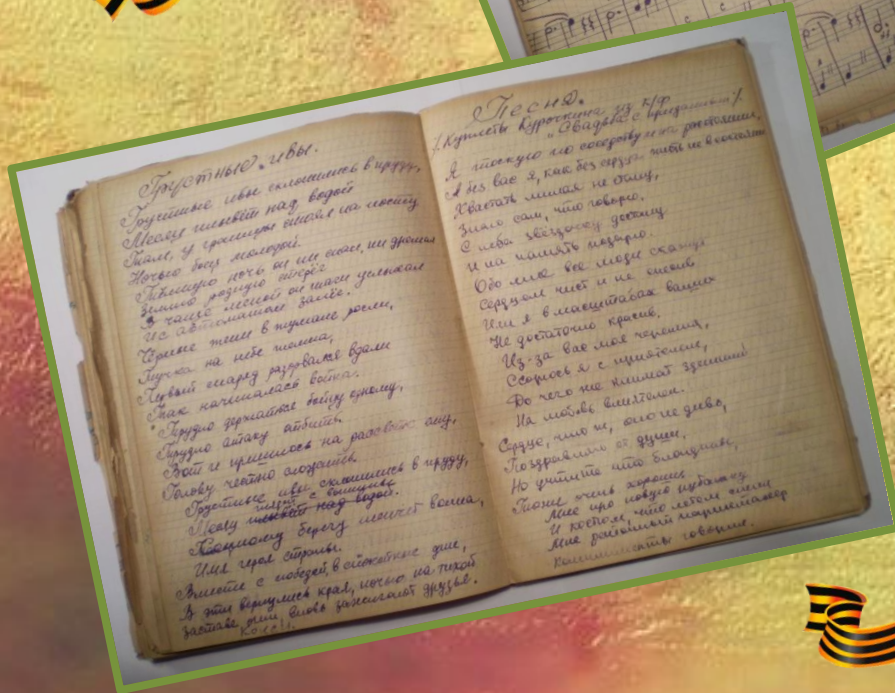 Грустные ивы.
Грустные ивы склонились к пруду,
Месяц плывёт над водой
Там, у границы стоял на посту
Ночью боец молодой.
Тёмную ночь он не спал, не дремал
Землю родную стерёг
В чаще лесной он шаги услыхал
и с автоматом залёг.
Чёрные тени в тумане росли,
Туча на небе темна,
Первый снаряд разорвался вдали
Так начиналась война.
Трудно держаться бойцу одному,
Трудно атаку отбить.
Вот и пришлось на рассвете ему,
Голову честно сложить.
Грустные ивы склонились к пруду,
Месяц плывёт над водой.
берегу шепчет волна,
Имя героя страны.
Вместе с победой, в спокойные дни,
В эти вернулись края, ночью на тихой
заставе огни вновь зажигают друзья.
Конец.
Песня.
/. Куплеты Курочкина из к/ф
„Свадьба с приданым“/.
Я тоскую по соседству и на расстоянии,
А без вас я, как без сердца жить не в состоянии
Хвастать милая не стану,
Знаю сам, что говорю.
С неба звёздочку достану
и на память подарю.
Обо мне все люди скажут
Сердцем чист и не спесив
Или я в масштабах ваших
Не достаточно красив.
Из-за вас моя черешня,
Ссорюсь я с приятелем,
До чего же климат здешний
На любовь влиятелен.
Сердце,
Поздравляю от души,
Но учтите что блондины,
Тоже очень хороши
Мне про новую рубашку
И костюм, что летом сшили
Мне
комплименты говорил.